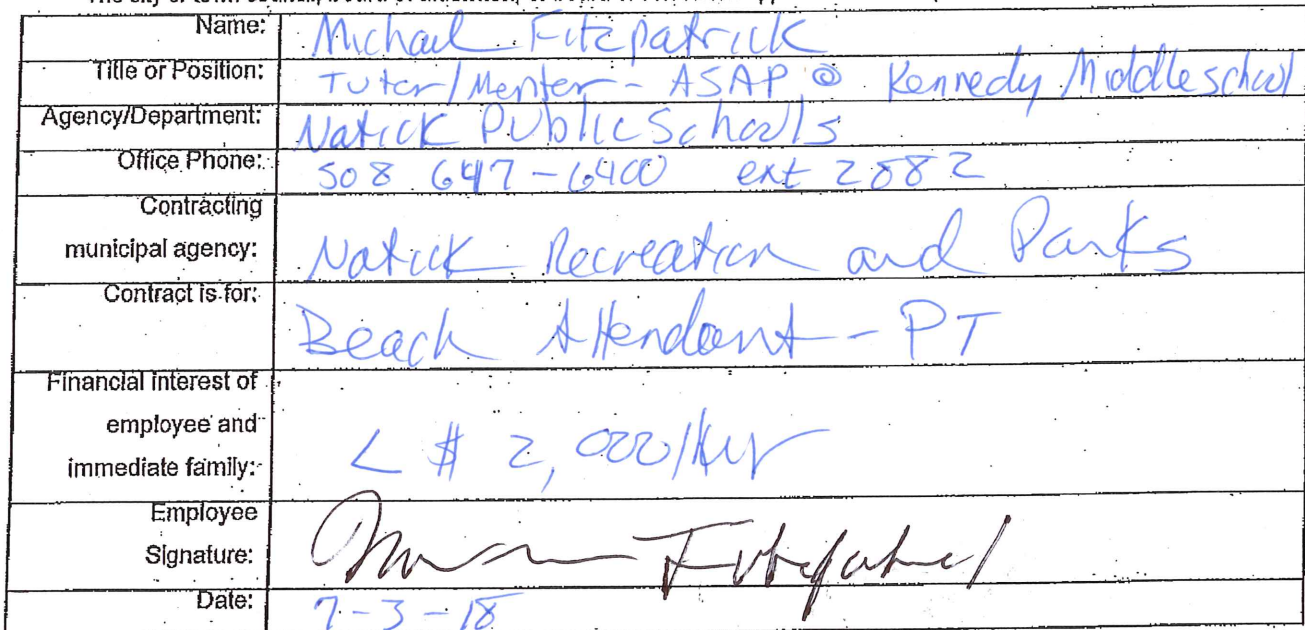 Name: Michael Fitzpatrick
Title or Position: Tutor/Mentor - ASAP @ Kennedy Middle School
Agency/Department: Natick Public Schools
Office Phone: 508 647-6400 ext 2882
Contracting
municipal agency: Natick Recreation and Parks
Contract is for: Beach Attendant - PT
Financial interest of
employee and
immediate family: < $ 2,000/
Employee
Signature: Fitzpatrick
Date: 7-3-18